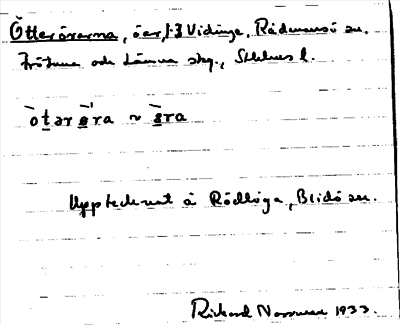 Ötterörarna, öar, f. 3 Vidinge, Rådmansö sn.
Frötuna och Länna skg., Sthlms l.
ōtər ȫra ~ ȫra
Upptecknat å Rödlöga, Blidö sn.
Rickard 1933.